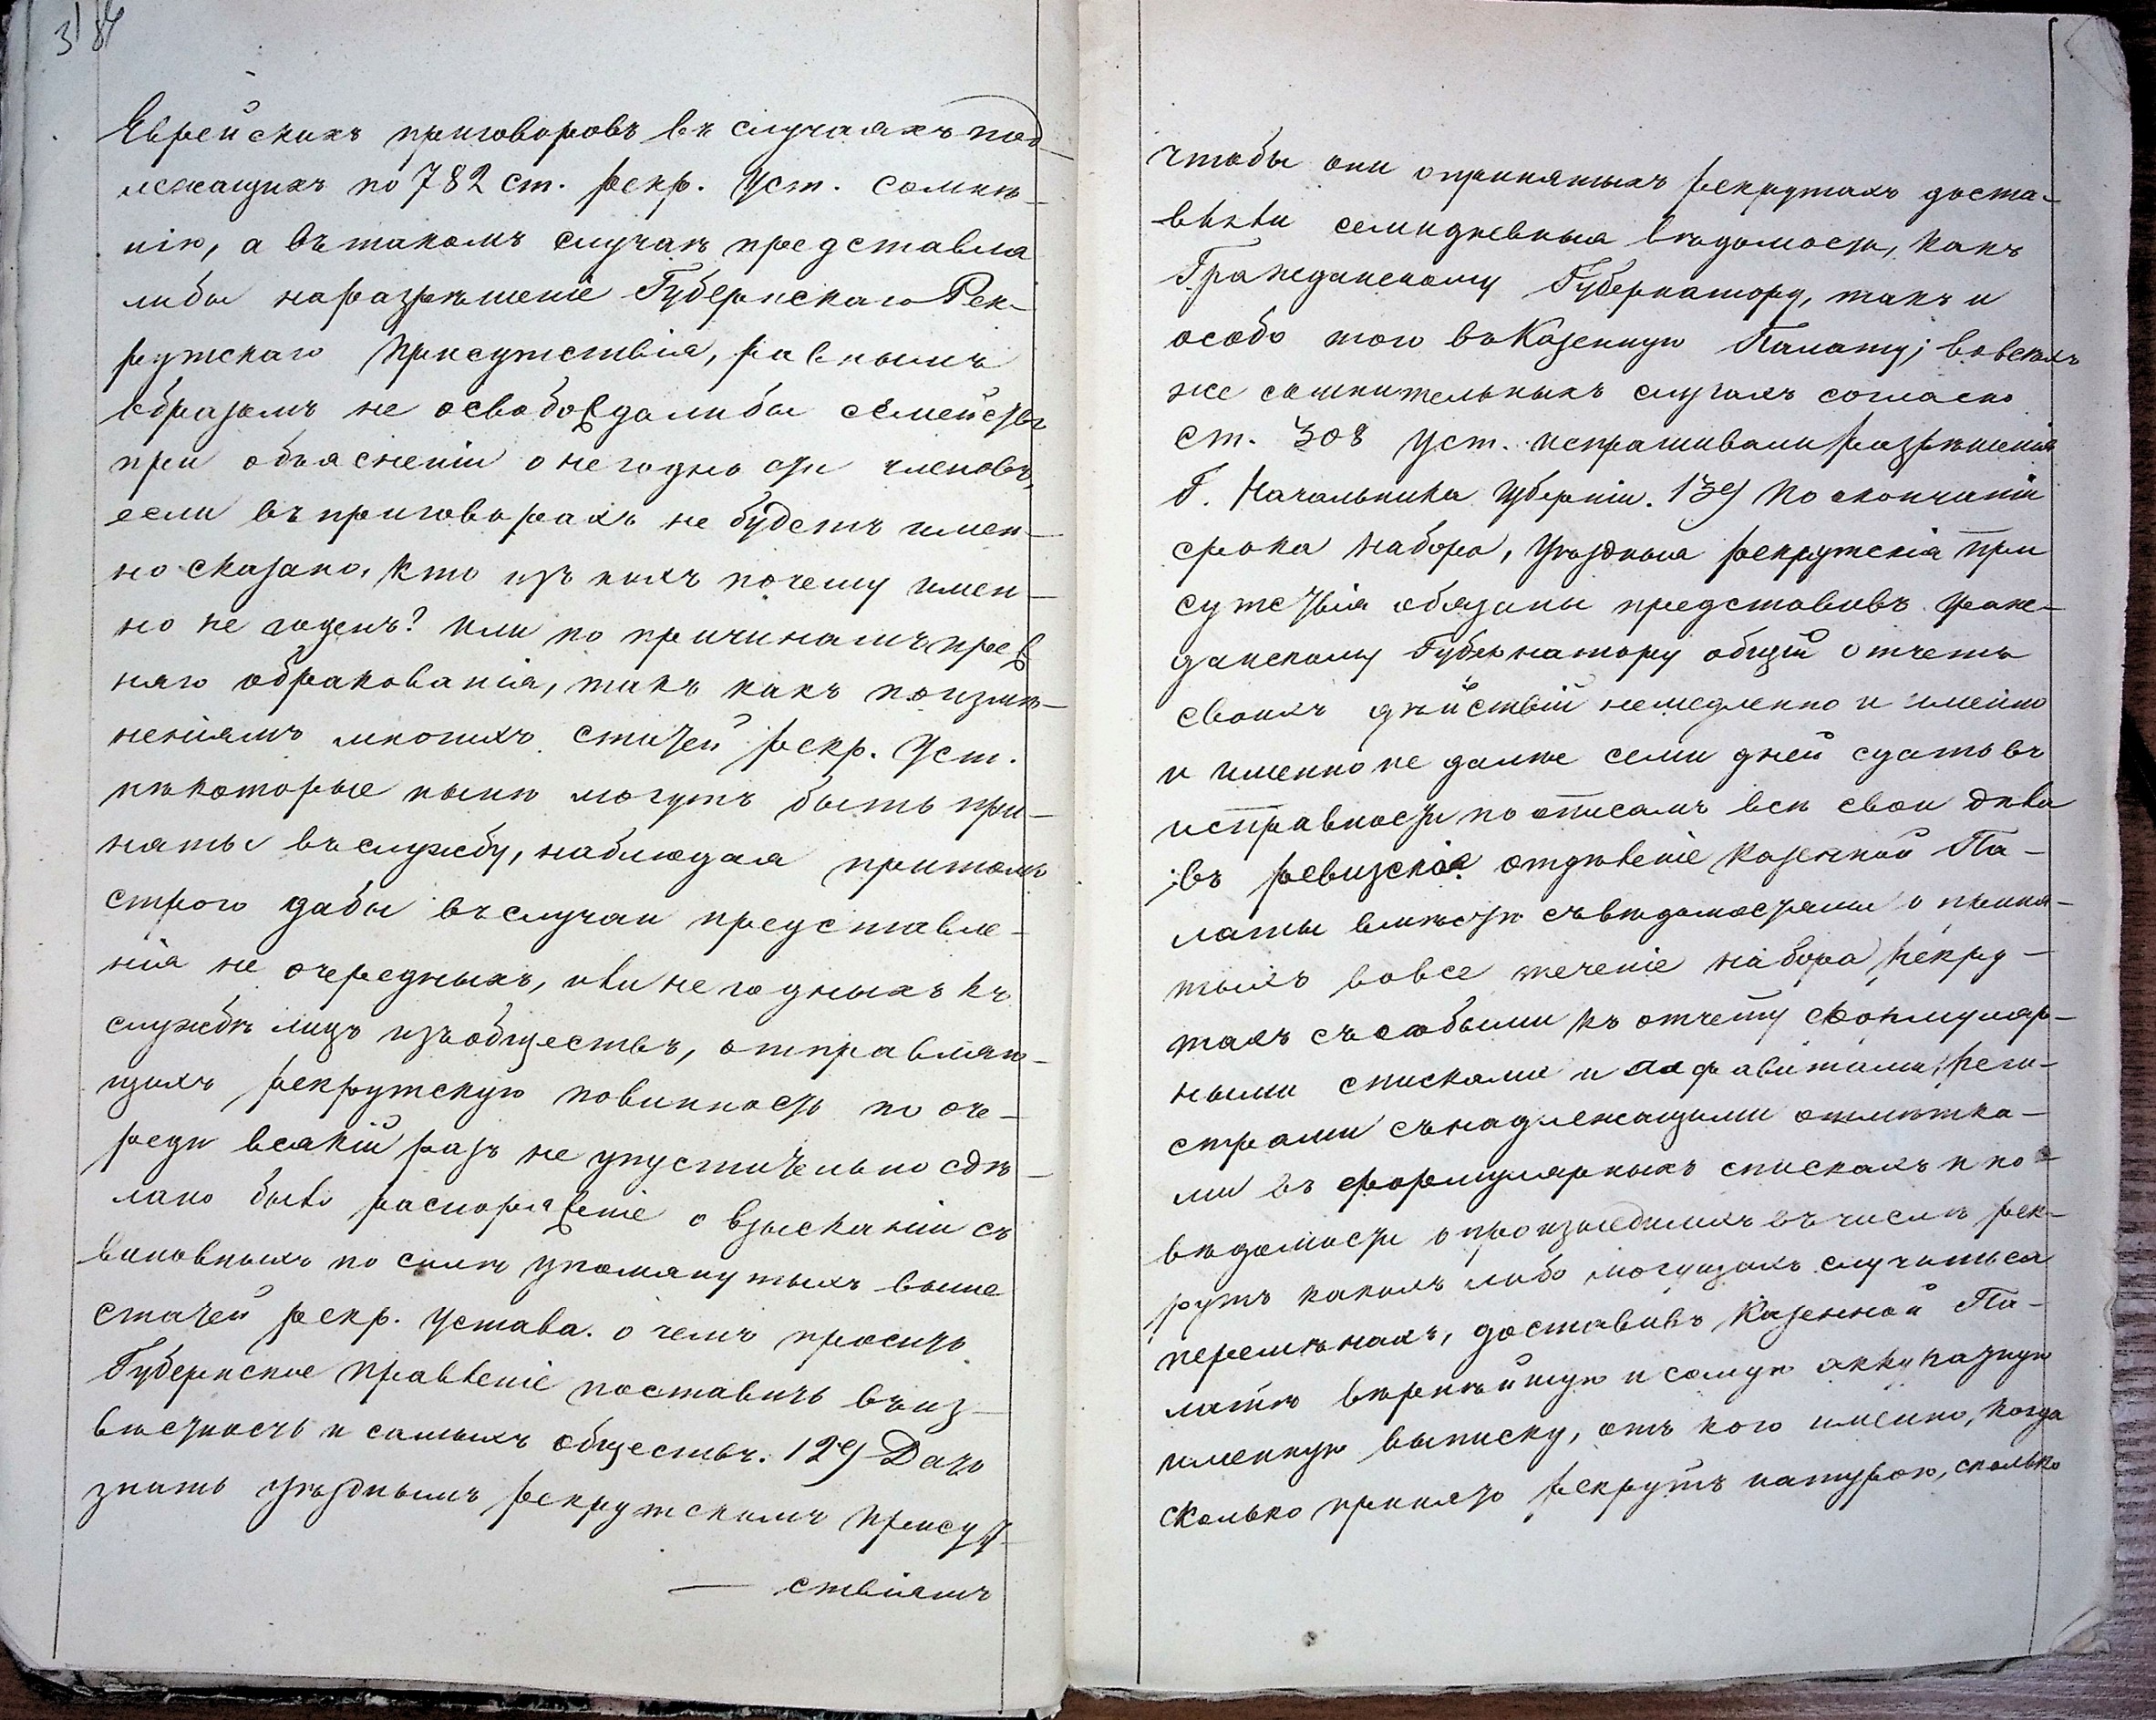 Еврейскихъ приговоровъ въ случаяхъ под-
лежащихъ по 782 ст. рекр. Уст. сомнѣ-
нію, а въ такомъ случаѣ представля
либы на разрѣшеніе Губернскаго Рек-
рутскаго Присутствія, равнымъ
образомъ не освобождали бы семейства
при объясненіи о негодности членовъ,
если въ приговорахъ не будетъ имен-
но сказано, кто изъ нихъ почему имен-
но не годенъ? или по причинамъ преж
няго обракованія, такъ какъ по измѣ-
неніямъ многихъ статей рекр. Уст.
нѣкоторые нынѣ могутъ быть при-
няты въ службу, наблюдая притомъ
строго дабы въ случаи представле-
нія не очередныхъ, или не годныхъ къ
службѣ лицъ изъ обществъ, отправляю-
щихъ рекрутскую повинность по оче-
реди всякій разъ не упустительно сдѣ-
лано было распоряженіе о взысканіи съ
виновныхъ по силѣ упомянутыхъ выше
статей рекр. Устава. о чемъ просить
Губернское Правленіе поставить въ из-
вѣстность и самыхъ обществъ. 12) Дать
знать уѣзднымъ рекрутскимъ Присут-
— ствіямъ
чтобы они о принятыхъ рекрутахъ доста-
вляли семидневныя вѣдомости, какъ
Гражданскому Губернатору, такъ и
особо того въ Казенную Палату; во всѣхъ
же сомнительныхъ случаяхъ согласно
ст. 308 уст. испрашивали разрѣшенія
Г. Начальника Губерніи. 13) По окончаніи
срока набора, Уѣздныя рекрутскія При
сутствія обязаны представивъ Граж-
данскому Губернатору общій отчетъ
своихъ дѣйствій немедленно и именно
и именно не далѣе семи дней сдать въ
исправности по описямъ всѣ свои дѣла
въ ревизское отдѣленіе Казенной Па-
латы вмѣстѣ съ вѣдомостями о приня-
тыхъ во все теченіе набора рекру-
тахъ съ особыми къ отчету формуляр-
ными списками и алфавитами, реги-
страми съ надлежащими отмѣтка-
ми въ формулярныхъ спискахъ и по
вѣдомости о произшедшихъ въ числѣ рек-
рутъ какихъ либо могущихъ случиться
перемѣнахъ, доставивъ Казенной Па-
латѣ вѣрнѣйшую и самую аккуратную
именную выписку, отъ кого именно, когда
сколько принято рекрутъ натурою, сколько